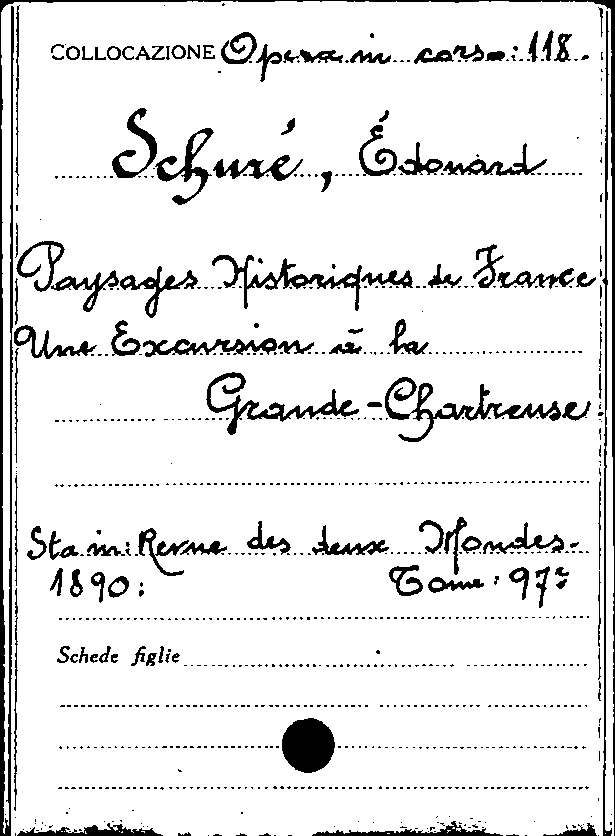 COLLOCAZIONE Opera in corso: 118.
Schuré, Édouard
Paysages Historiques de France.
Une Excursion à la
Grande-Chartreuse.
Sta in: Revue des deux Mondes-
1890: Tome: 97e
Schede figlie